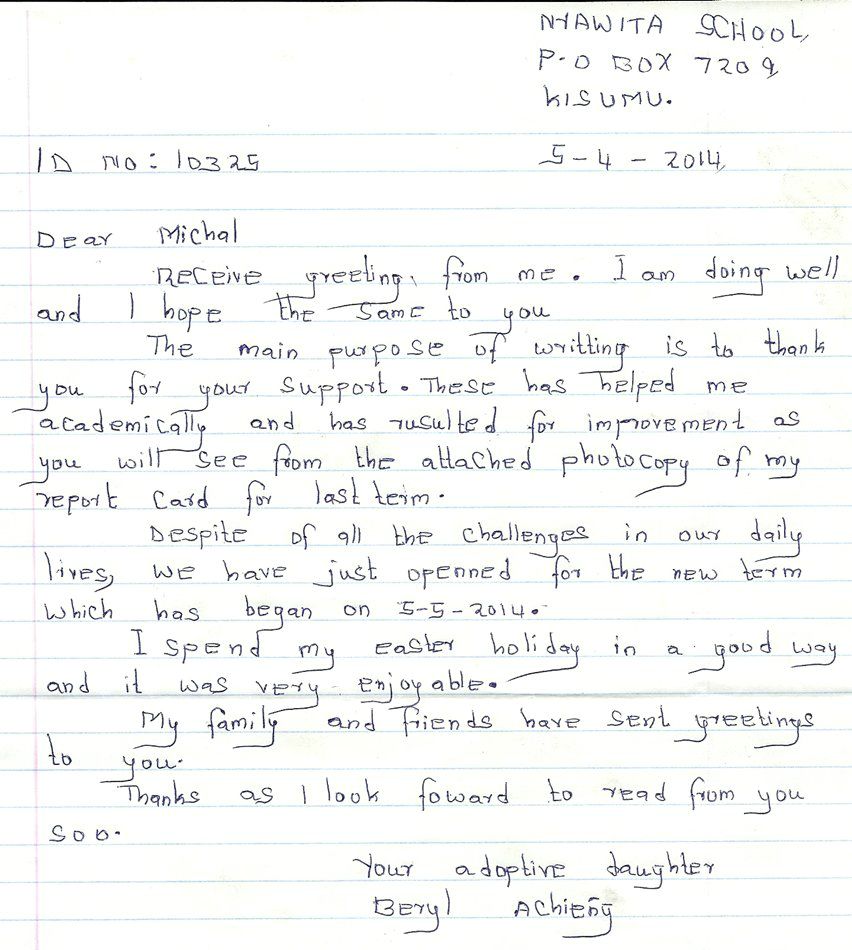 NYAWITA SCHOOL,
P.O BOX 7209
KISUMU.
ID NO: 10325
5-4-2014,
Dear Michal
Receive greeting, from me. I am doing well
and I hope the same to you
The main purpose of writting is to thank
you for your support. These has helped me
academically and has rusulted for improvement as
you will see from the attached photocopy of my
report card for last term.
Despite of all the challenges in our daily
lives, we have just openned for the new term
which has began on 5-5-2014.
I spend my easter holiday in a good way
and it was very enjoyable.
My family and friends have sent greetings
to you.
Thanks as I look foward to read from you
soo.
Your adoptive daughter
Beryl Achieng